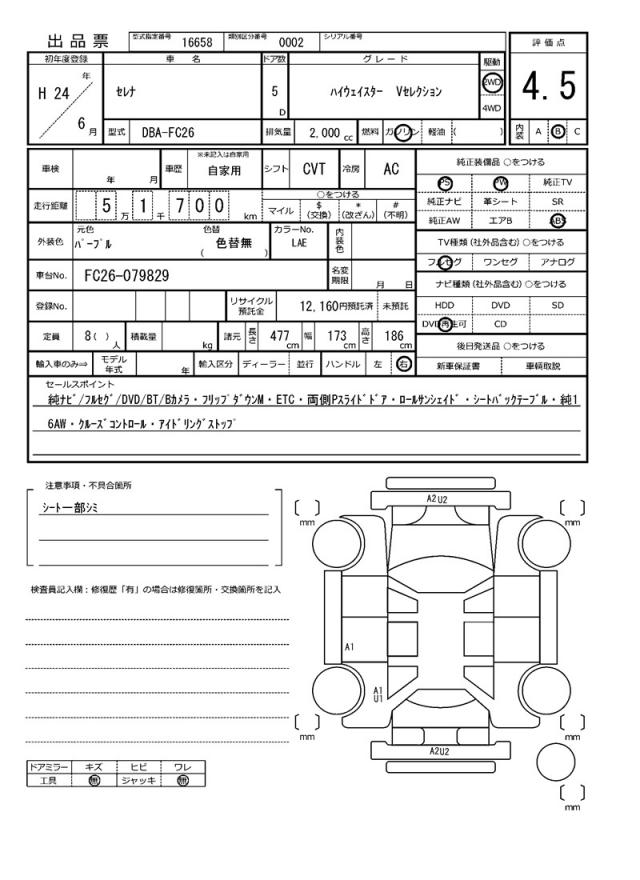 出品票 型式指定番号 16658 類別区分番号 0002 シリアル番号
初年度登録 車名 ドア数 グレード 駆動 評価点
H 24 年 6 月 セレナ 5 D ハイウェイスター Vセレクション 2WD 4WD 4.5
型式 DBA-FC26 排気量 2,000 cc 燃料 ガソリン 軽油 ( ) 内装 A B C
車検 年 月 車歴 ※未記入は自家用 自家用 シフト CVT 冷房 AC
走行距離 5 万 1 千 7 0 0 km ○をつける マイル $ (交換) * (改ざん) # (不明)
外装色 元色 パープル 色替 ( 色替無 ) カラーNo. LAE 内装色
車台No. FC26-079829 名変期限 月 日
登録No. リサイクル預託金 12,160円預託済 未預託
定員 8( ) 人 積載量 kg 諸元 長さ 477 cm 幅 173 cm 高さ 186 cm
輸入車のみ⇒ モデル年式 年 輸入区分 ディーラー 並行 ハンドル 左 右
純正装備品 ○をつける
PS PW 純正TV
純正ナビ 革シート SR
純正AW エアB ABS
TV種類 (社外品含む) ○をつける
フルセグ ワンセグ アナログ
ナビ種類 (社外品含む) ○をつける
HDD DVD SD
DVD再生可 CD
後日発送品 ○をつける
新車保証書 車輌取説
セールスポイント
純ナビ/フルセグ/DVD/BT/Bカメラ・フリップダウンM・ETC・両側Pスライドドア・ロールサンシェイド・シートバックテーブル・純1
6AW・クルーズコントロール・アイドリングストップ
注意事項・不具合箇所
シート一部シミ
検査員記入欄：修復歴「有」の場合は修復箇所・交換箇所を記入
ドアミラー キズ ヒビ ワレ
工具 無 ジャッキ 無
A2U2
mm
mm
A1
A1
U1
mm
mm
A2U2
mm